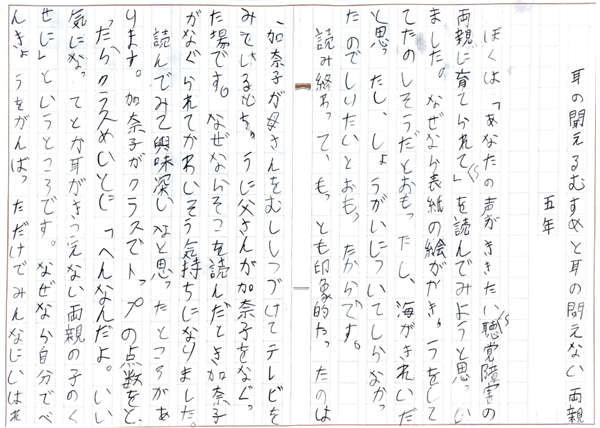 耳の聞えるむすめと耳の聞えない両親
五年
ぼくは「あなたの声がききたい聴覚障害の
両親に育てられて」を読んでみようと思い
ました。なぜなら表紙の絵ががっきっうをして
てたのしそうだとおもったし、海がきれいだ
と思ったし、しょうがいについてしらなかっ
たのでしりたいとおもったからです。
読み終わって、もっとも印象的だったのは
、加奈子が母さんをむししつづけてテレビを
みているともちうに父さんが加奈子をなぐっ
た場です。なぜならそこを読んだとき加奈子
がなぐられてかわいそう気持ちになりました。
読んでみて興味深いなと思ったところがあ
ります。加奈子がクラスでトップの点数をと、
たらクラスめいとに「へんなんだよ。いい
気になってとか耳がきこえない両親の子のく
せに」というところです。なぜなら自分でべ
んきょうをがんばっただけでみんなにいはれ